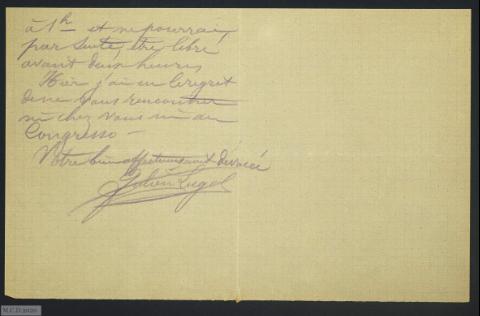 à 1h et ne pourrai,
par suite, être libre
avant deux heures,
Hier j'ai eu le regret
de ne vous rencontrer
ni chez vous ni au
Congresso —
Votre bien affectueusement dévoué
Julien
M.C.D.